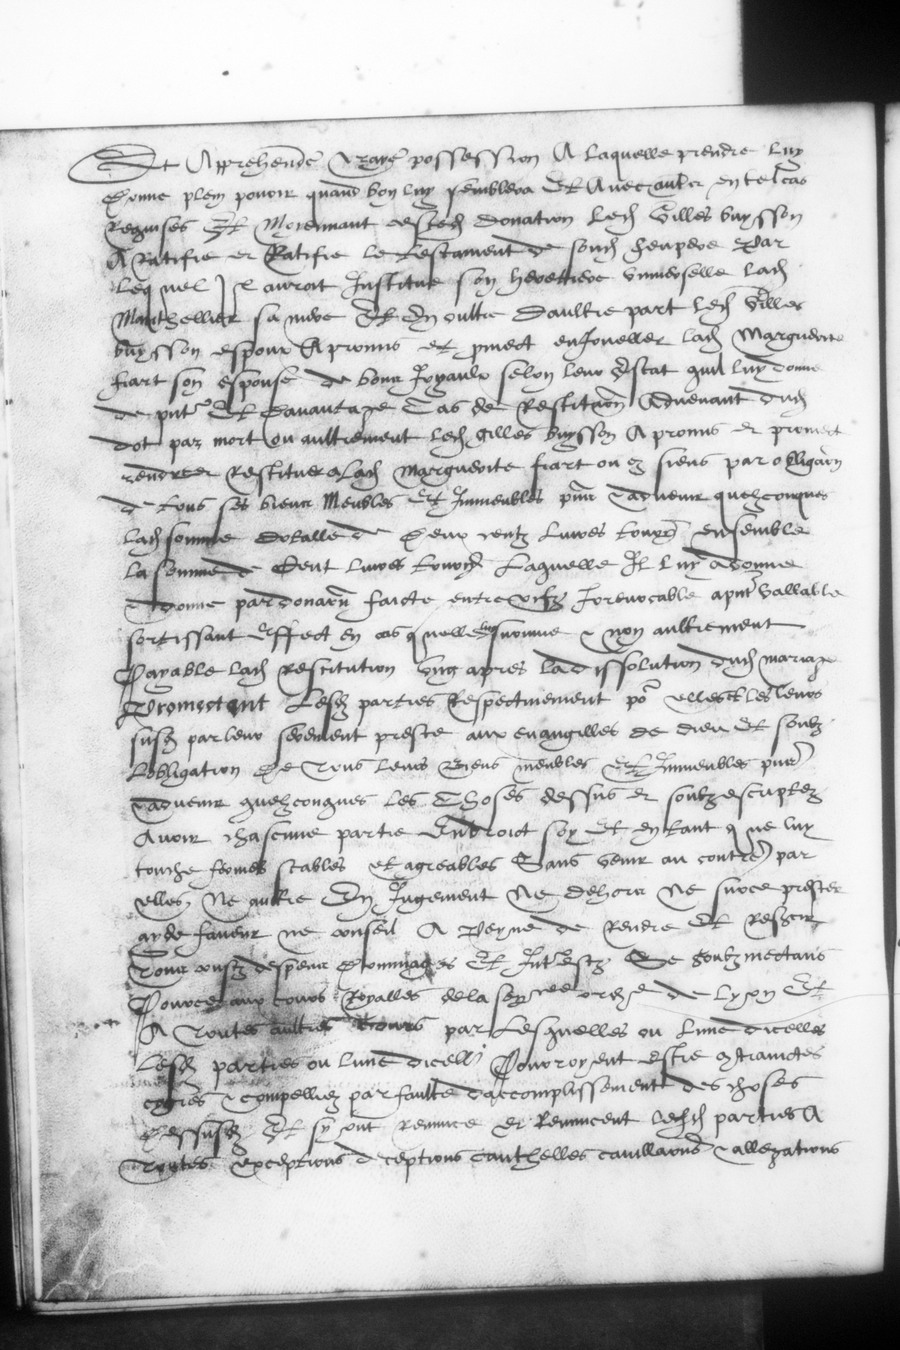 Et Apprehende vraye possession A laquelle prendre luy
donne plein povoir quand bon luy semblera Et Avec aultr en tel cas
Requises Et Moyennant cested donation led Gilles buysson
A Ratifie et Ratifie le testament de soud feu pere Par
lequel Il auroit Institue son heretiere universelle lad
Monthellier sa mere Et En oultre Daultre part led Gilles
buysson espoux A promis et pmect enJoueller lad Marguerite
fiart son espouse de bons Joyaulx selon leur Estat quil luy donne
de pnt Et davantaige Cas de Restituon Advenant dud
dot par mort ou aultrement led Gilles buysson A promis et promect
rendre et Restituer a Lad Marguerite fiart ou es siens par obligaon
de tous ses biens Meubles Et Immeubles pns Et advenir quelzconques
lad somme dotalle de Deux centz Livres tourn ensemble
la somme de Cent livres tourn Laquelle Il luy a donne
Et donne par donaon faicte entre vifz Irrevocable apnt vallable
sortissant Effect en cas quelle luy survive et non aultrement
Payable lad Restitution ung apres la dissolution dud mariage
Promectent Lesd parties Respectivement por elles Et les leurs
susd par leur serement preste aux evangilles de dieu Et soubz
Lobligation De Tous leurs Biens meubles Et Immeubles pns
Et advenir quelzconques les Choses dessus et soubz escriptes
Avoir chascune partie Endroict soy Et en tant que luy
touche fermes stables et agreables Sans venir au contre par
elles, Ne aultre En Jugement Ne dehors Ne sur ce prester
ayde faveur ne conseil A Peyne de Rendre Et Resfair
Tous coustz despens dommages Et Interestz Se soubzmectans
Pour ce aux cours Royalles de la sencee de Lyon Et
A Toutes aultres Cours par Lesquelles ou lune dicelles
Lesd parties ou lune dicelles Pourroyent Estre contrainctes
et compelliez par faulte daccomplissement des choses
dessusd Et sy ont renunce et Renuncent lesd parties A
Toutes exceptions deceptions cauthelles cavillaons Et allegations